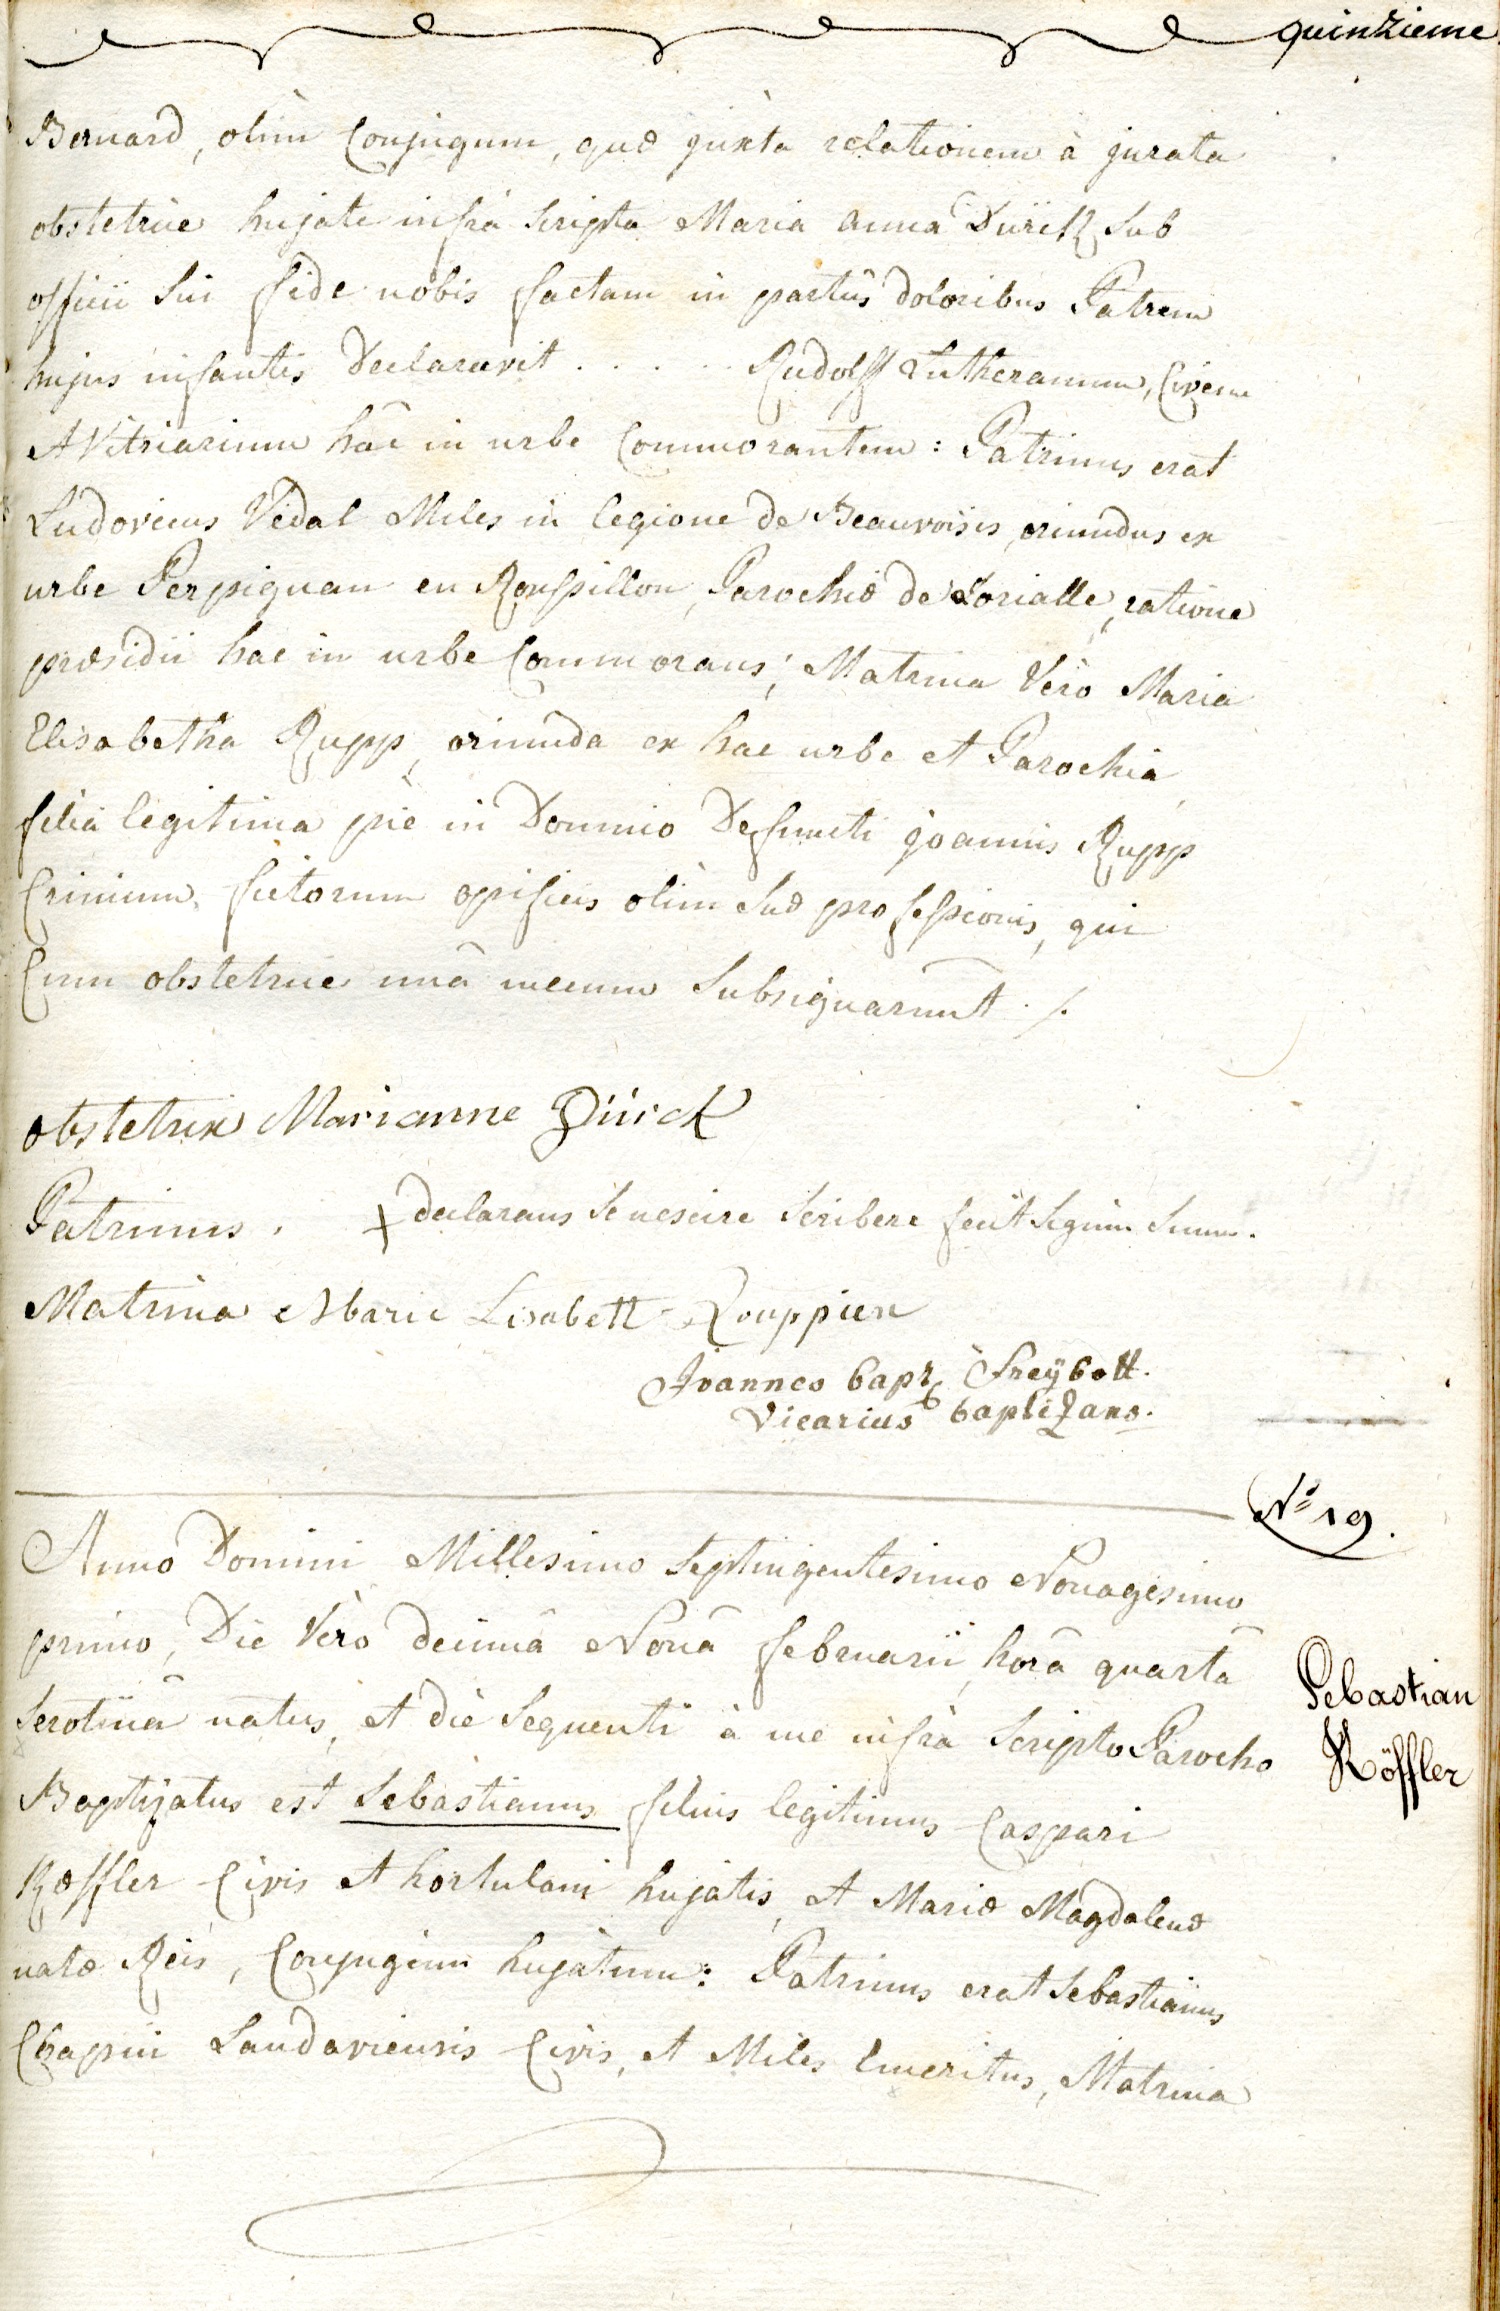 quinzieme
Bernard, olim Conjugum, quæ juxta relationem à jurata
obstetrice hujate infrà scripta Maria anna Dürck sub
officii sui fide nobis factam in partûs doloribus Patrem
hujus infantis Declaravit . . . . . . Rudolff Lutheranum, Civem
et Vitriarium hâc in urbe Commorantem : Patrinus erat
Ludovicus Vidal Miles in legione de Beauvoisis, oriundus ex
urbe Perpignan en Roussillon, Parochiæ de Lorialle, ratione
præsidii hac in urbe Commorans; Matrina Vero Maria
Elisabetha Rupp, oriunda ex hac urbe et Parochia,
filia legitima piè in Domino Defuncti joannis Rupp
Crinium fictorum opificis olim suæ professionis, qui
Cum obstetrice unâ mecum subsignarunt ./.
obstetrix Marianne Dürck
Patrinus . + declarans se nescire scribere fecit signum suum.
Matrina Marie Lisabett Rouppien
Joannes bapt Freÿbott.
Vicarius baptizans.
N° 19.
Anno Domini Millesimo septingentesimo Nonagesimo
primo, Die Vero decimâ Nonâ februarii, horâ quartâ
serotinâ natus, et die sequenti à me infrà scripto Parocho
Baptizatus est Sebastianus filius legitimus Caspari
Röffler Civis et hortulani hujatis, et Mariæ Magdalenæ
natæ Reis, Conjugum hujatum : Patrinus erat Sebastianus
Chapui Landaviensis Civis, et Miles Emeritus, Matrina
Sebastian
Röffler